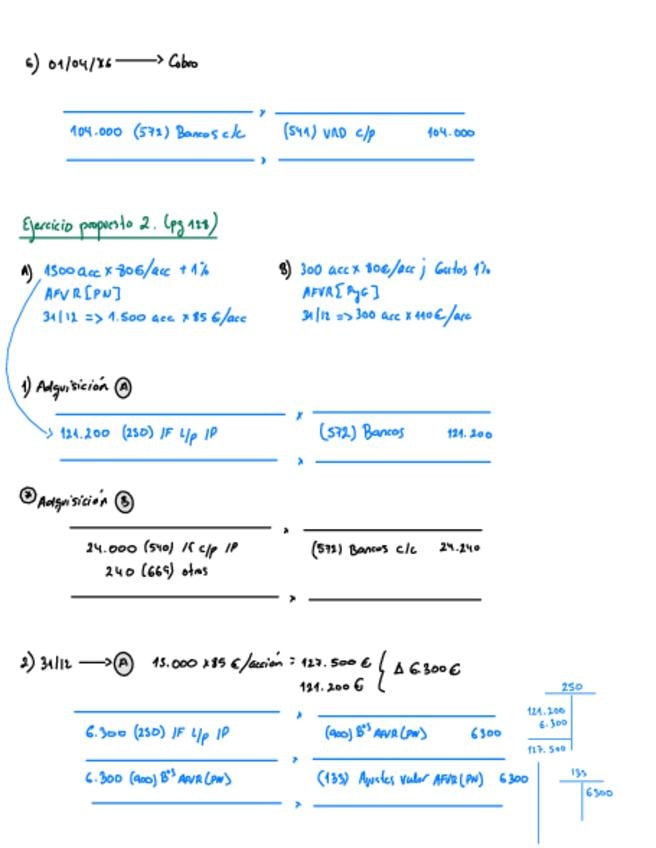 6) 01/04/X6 → Cobro
104.000 (572) Bancos c/c (541) VRD c/p 104.000
Ejercicio propuesto 2. (pg 128)
A) 1500 acc x 80€/acc + 1%
AFVR [PN]
31/12 => 1.500 acc x 85 €/acc
B) 300 acc x 80€/acc ; Gastos 1%
AFVR [PyG]
31/12 => 300 acc x 110€/acc
1) Adquisición A
121.200 (250) IF L/p IP (572) Bancos 121.200
* Adquisición B
24.000 (540) IF c/p IP (572) Bancos c/c 24.240
240 (669) otros
2) 31/12 → A 15.000 x 85 €/acción = 127.500 € { Δ 6.300 €
121.200 €
6.300 (250) IF L/p IP (900) Bºs AFVR (PN) 6300
6.300 (900) Bºs AFVR (PN) (133) Ajustes valor AFVR (PN) 6300
250
121.200
6.300
127.500
133
6300